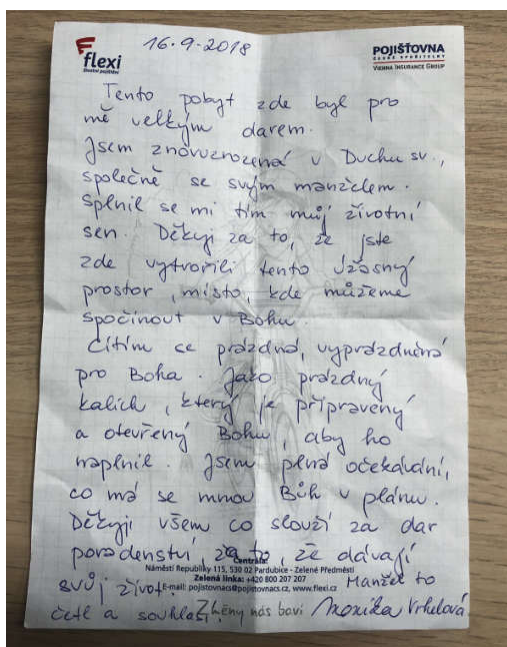 flexi
životní pojištění
16.9.2018
POJIŠŤOVNA
ČESKÉ SPOŘITELNY
VIENNA INSURANCE GROUP
Tento pobyt zde byl pro
mě velkým darem.
Jsem znovuzrozená v Duchu sv.,
společně se svým manželem.
Splnil se mi tím můj životní
sen. Děkuji za to, že jste
zde vytvořili tento úžasný
prostor, místo, kde můžeme
spočinout v Bohu.
Cítím se prázdná, vyprázdněná
pro Boha. Jako prázdný
kalich, který je připravený
a otevřený Bohu, aby ho
naplnil. Jsem plná očekávání,
co má se mnou Bůh v plánu.
Děkuji všem co slouží za dar
poradenství, za to, že dávají
Centrála:
Náměstí Republiky 115, 530 02 Pardubice - Zelené Předměstí
Zelená linka: +420 800 207 207
svůj život. Manžel to
E-mail: pojistovnacs@pojistovnacs.cz, www.flexi.cz
četl a souhlasí. nás baví Monika Vrhelová